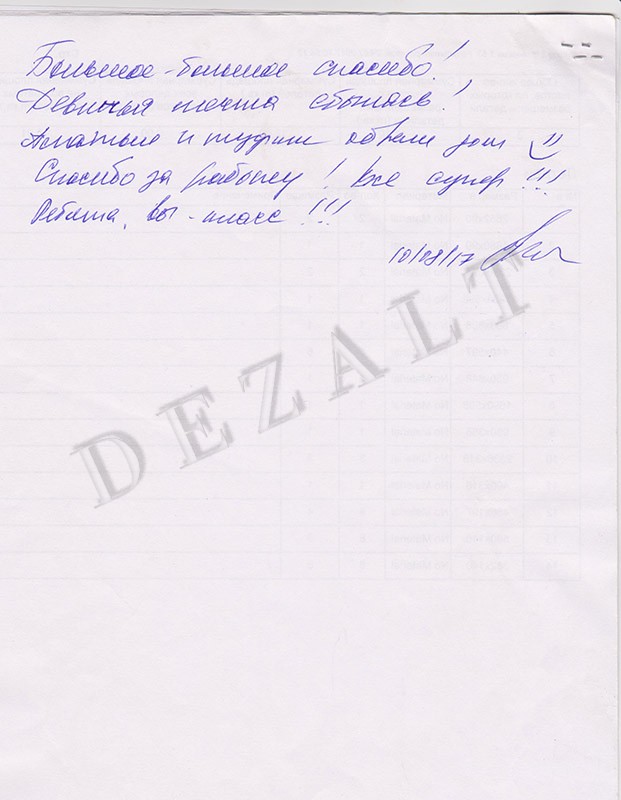 Большое-большое спасибо!
Девичья мечта сбылась!
и туфли обрели дом
Спасибо за работу! Все супер!!!
Ребята, вы - класс!!!
10/08/17
DEZALT